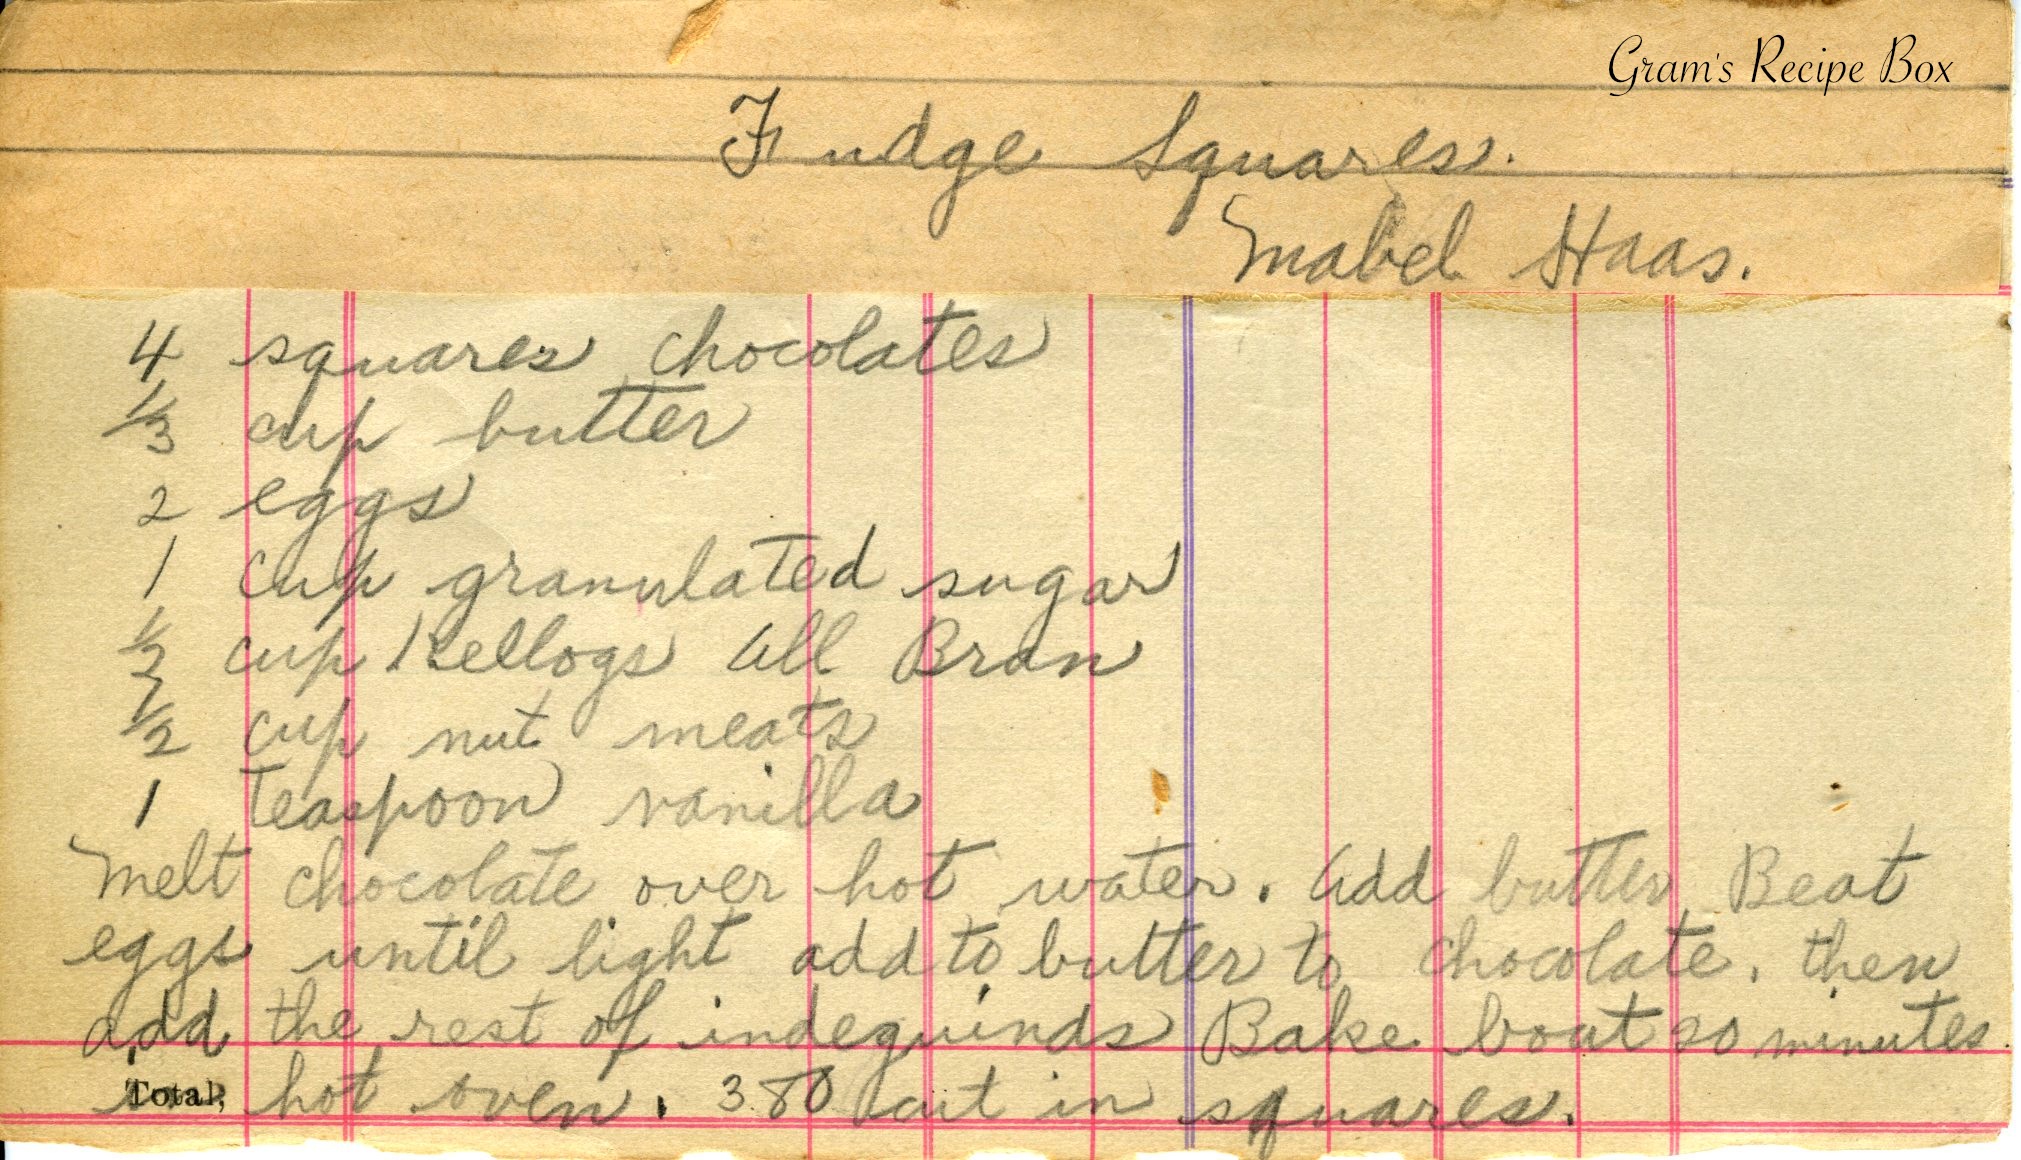 Gram's Recipe Box
Fudge Squares.
Mabel Haas.
4 squares chocolates
1/3 cup butter
2 eggs
1 cup granulated sugar
1/2 cup Kellogs All Bran
1/2 cup nut meats
1 teaspoon vanilla
Melt chocolate over hot water. Add butter Beat
eggs until light add to butter to chocolate. then
add the rest of indeguinds Bake bout 20 minutes
Total, in hot oven. 380 cut in squares.